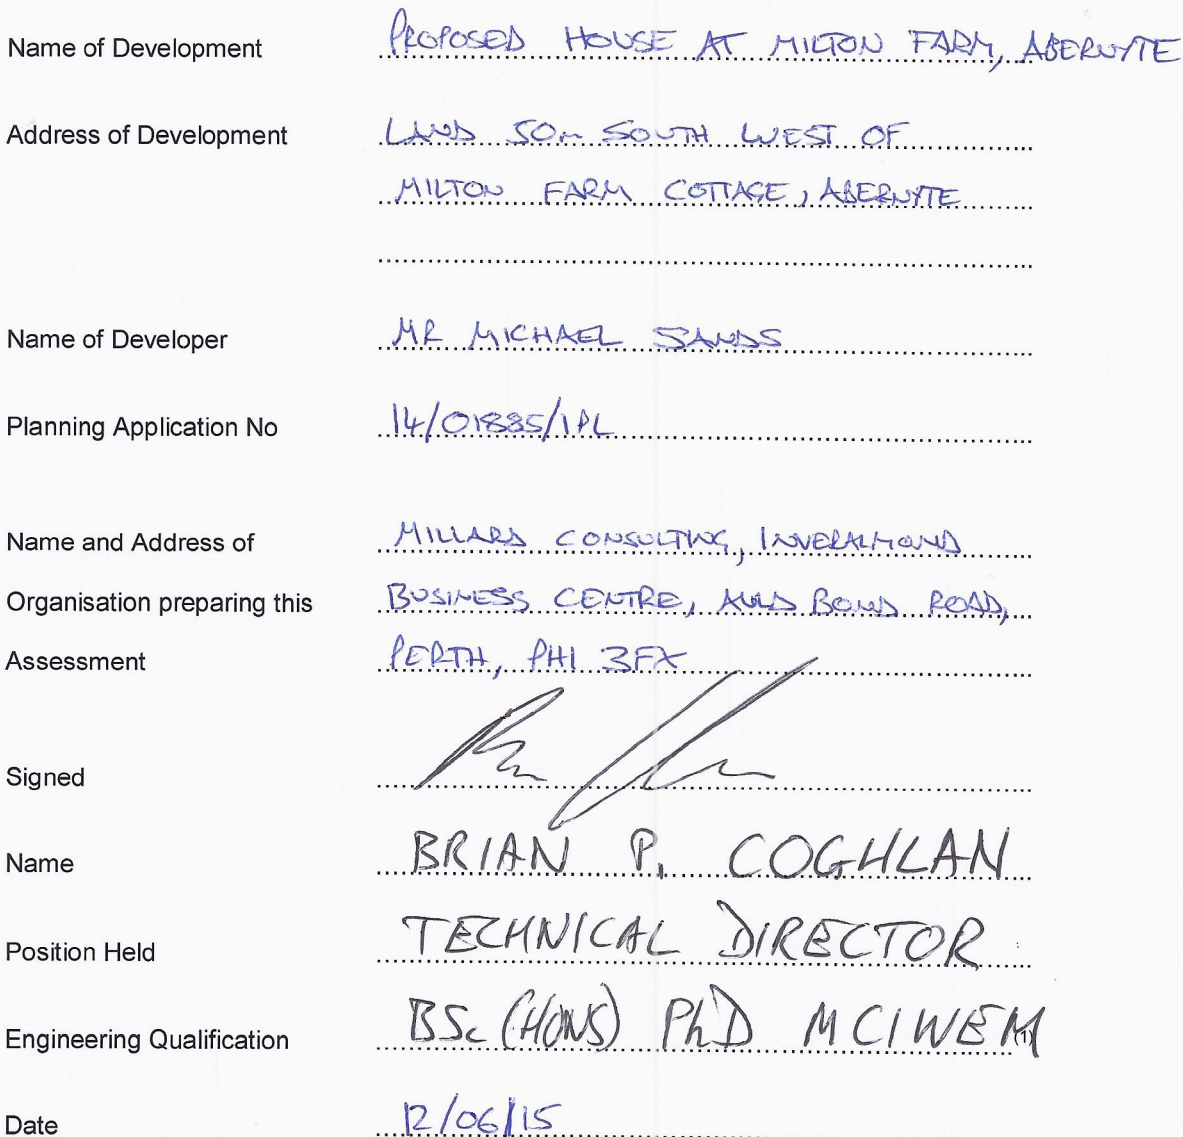 Name of Development PROPOSED HOUSE AT MILTON FARM, ABERNYTE
Address of Development LAND 50m SOUTH WEST OF
MILTON FARM COTTAGE, ABERNYTE
Name of Developer MR MICHAEL SANDS
Planning Application No 14/01885/IPL
Name and Address of MILLARD CONSULTING, INVERALMOND
Organisation preparing this BUSINESS CENTRE, AULD BOND ROAD,
Assessment PERTH, PH1 3FX
Signed
Name BRIAN P. COGHLAN
Position Held TECHNICAL DIRECTOR
Engineering Qualification BSc (HONS) PhD MCIWEM (1)
Date 12/06/15